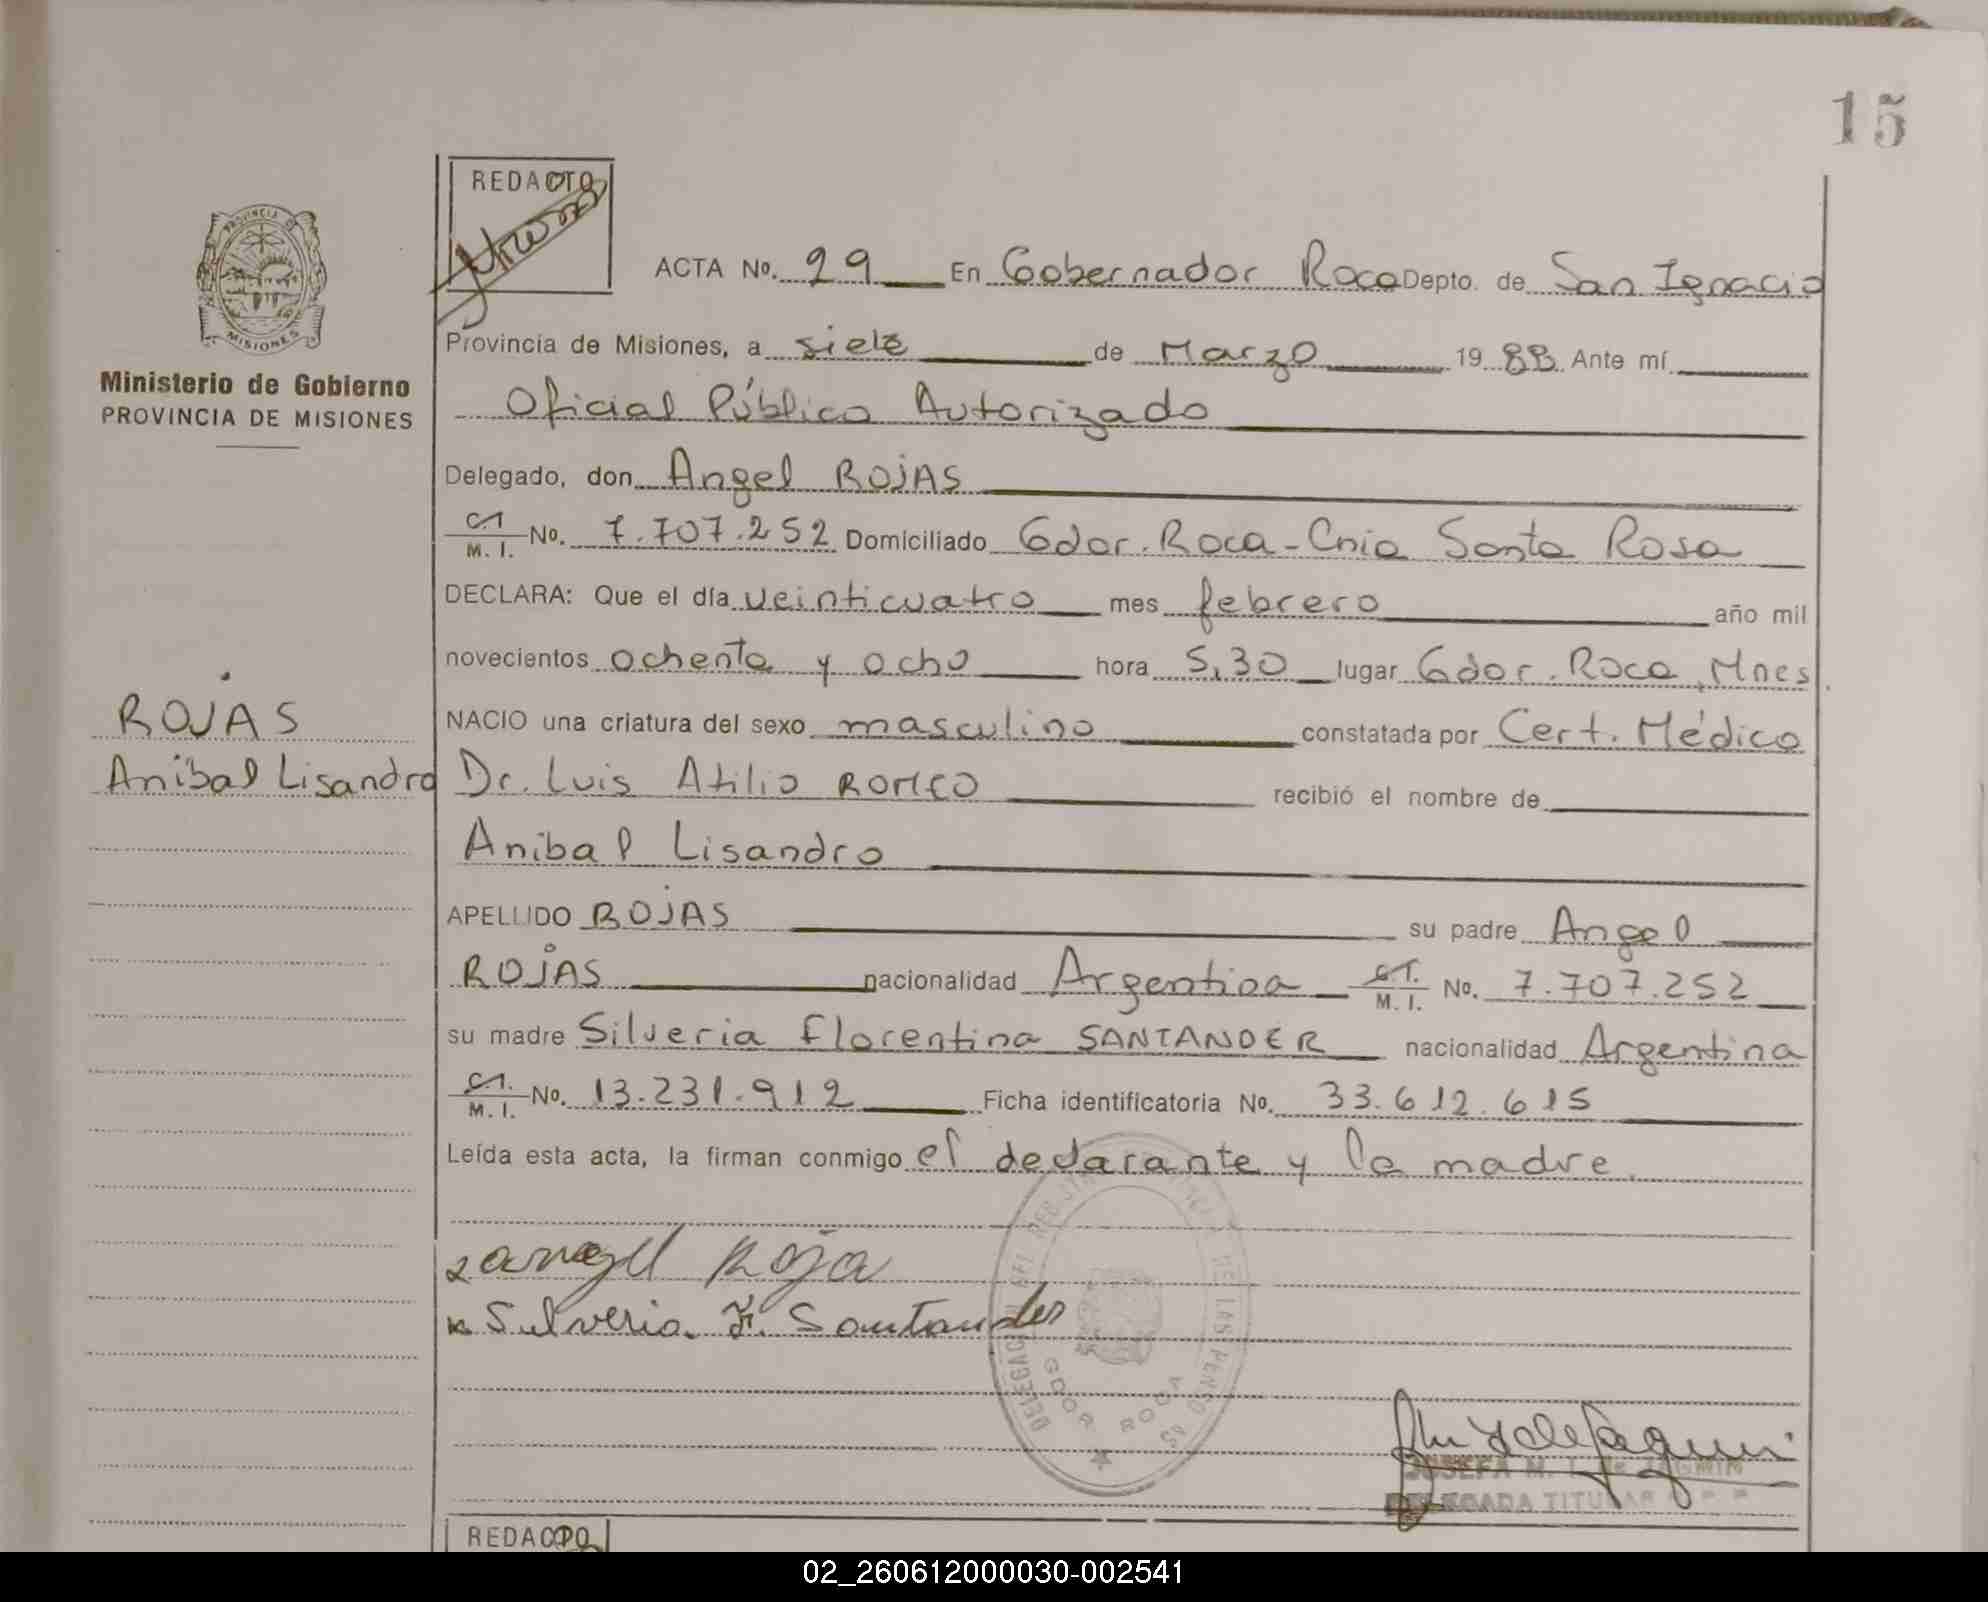 15
REDACTO
PROVINCIA DE
MISIONES
Ministerio de Gobierno
PROVINCIA DE MISIONES
ACTA No. 29 En Gobernador Roca Depto. de San Ignacio
Provincia de Misiones, a siete de Marzo 1988 Ante mí
Oficial Público Autorizado
Delegado, don Angel ROJAS
C.I. M. I. No. 7.707.252 Domiciliado Gdor. Roca - Cnia Santa Rosa
DECLARA: Que el día veinticuatro mes febrero año mil
novecientos ochenta y ocho hora 5,30 lugar Gdor. Roca, Mnes.
ROJAS
NACIO una criatura del sexo masculino constatada por Cert. Médico
Anibal Lisandro
Dr. Luis Atilio ROMEO recibió el nombre de
Anibal Lisandro
APELLIDO ROJAS su padre Angel
ROJAS nacionalidad Argentina C.I. M. I. No. 7.707.252
su madre Silveria Florentina SANTANDER nacionalidad Argentina
C.I. M. I. No. 13.231.912 Ficha identificatoria No. 33.612.615
Leída esta acta, la firman conmigo el declarante y la madre.
angel Roja
Silveria F. Santander
DELEGACION DEL REGISTRO DE LAS PERSONAS
GDOR ROCA
JOSEFA M. I. de JAQUIN
DELEGADA TITULAR
REDACTO
02_260612000030-002541